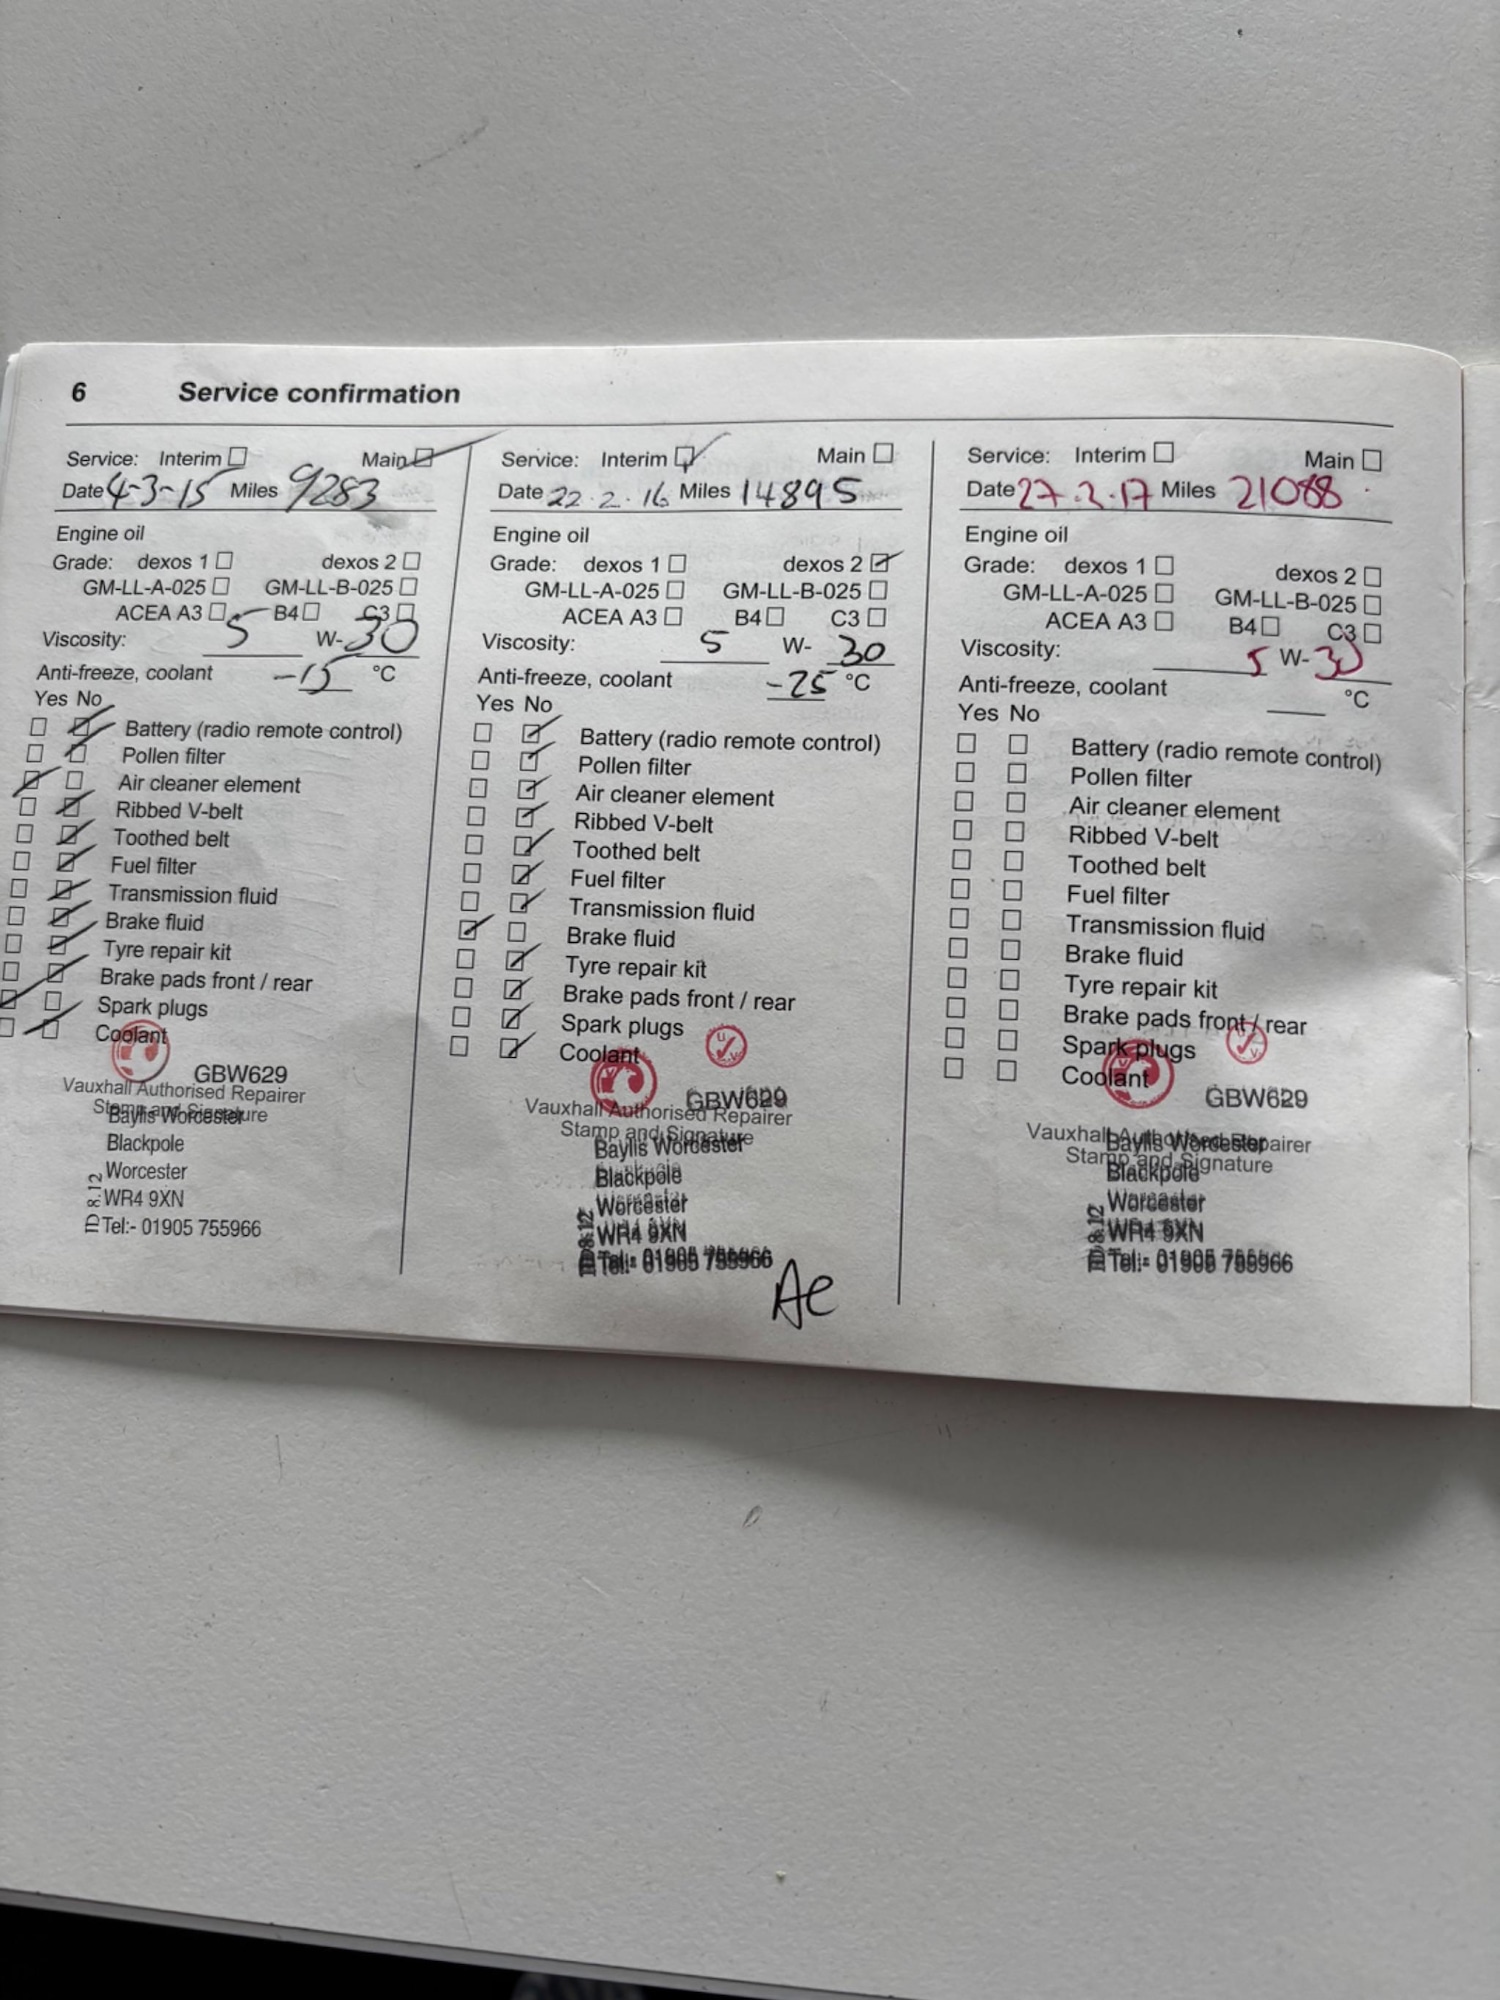 6 Service confirmation
Service: Interim Main
Date 4-3-15 Miles 9283
Engine oil
Grade: dexos 1 dexos 2
GM-LL-A-025 GM-LL-B-025
ACEA A3 B4 C3
Viscosity: 5 W- 30
Anti-freeze, coolant -15 °C
Yes No
Battery (radio remote control)
Pollen filter
Air cleaner element
Ribbed V-belt
Toothed belt
Fuel filter
Transmission fluid
Brake fluid
Tyre repair kit
Brake pads front / rear
Spark plugs
Coolant
GBW629
Vauxhall Authorised Repairer
Stamp and Signature
Baylis Worcester
Blackpole
Worcester
WR4 9XN
Tel:- 01905 755966
ID 8.12
Service: Interim Main
Date 22.2.16 Miles 14895
Engine oil
Grade: dexos 1 dexos 2
GM-LL-A-025 GM-LL-B-025
ACEA A3 B4 C3
Viscosity: 5 W- 30
Anti-freeze, coolant -25 °C
Yes No
Battery (radio remote control)
Pollen filter
Air cleaner element
Ribbed V-belt
Toothed belt
Fuel filter
Transmission fluid
Brake fluid
Tyre repair kit
Brake pads front / rear
Spark plugs
Coolant
GBW629
Vauxhall Authorised Repairer
Stamp and Signature
Baylis Worcester
Blackpole
Worcester
WR4 9XN
Tel:- 01905 755966
ID 8.12
Service: Interim Main
Date 27.2.17 Miles 21088
Engine oil
Grade: dexos 1 dexos 2
GM-LL-A-025 GM-LL-B-025
ACEA A3 B4 C3
Viscosity: 5 W- 30
Anti-freeze, coolant °C
Yes No
Battery (radio remote control)
Pollen filter
Air cleaner element
Ribbed V-belt
Toothed belt
Fuel filter
Transmission fluid
Brake fluid
Tyre repair kit
Brake pads front / rear
Spark plugs
Coolant
GBW629
Vauxhall Authorised Repairer
Stamp and Signature
Baylis Worcester
Blackpole
Worcester
WR4 9XN
Tel:- 01905 755966
ID 8.12